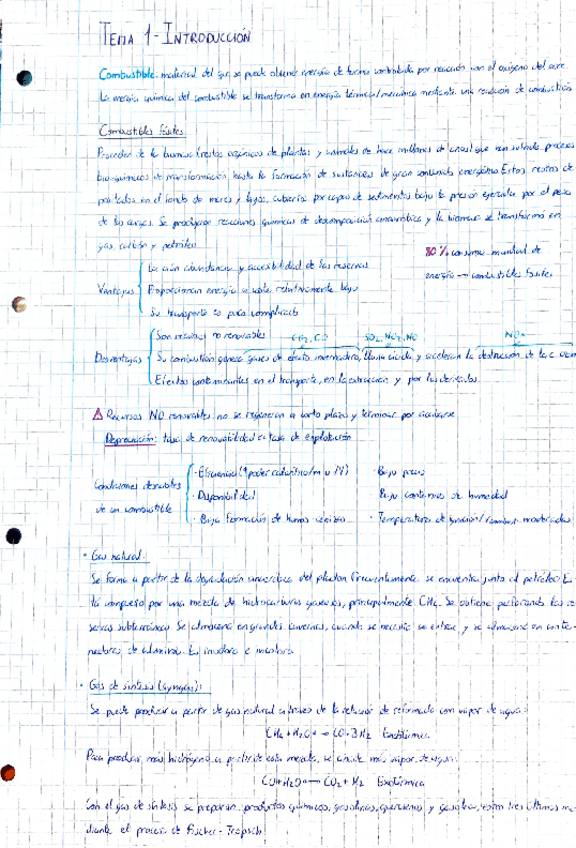 TEMA 1-INTRODUCCIÓN
Combustible: material del que se puede obtener energía de forma controlada por reacción con el oxígeno del aire.
La energía química del combustible se transforma en energía térmica/mecánica mediante una reacción de combustión
Combustibles fósiles
Proceden de la biomasa (restos orgánicos de plantas y animales de hace millones de años) que han sufrido procesos
bioquímicos de transformación, hasta la formación de sustancias de gran contenido energético. Estos restos de
positados en el fondo de mares y lagos, cubiertos por capas de sedimentos bajo la presión ejercida por el peso
de las capas. Se producen reacciones químicas de descomposición anaeróbica y la biomasa se transforma en
gas, carbón y petróleo.
80% consumo mundial de
energía → combustibles fósiles
Ventajas
La aún abundancia y accesibilidad de las reservas
Proporcionan energía a coste relativamente bajo
Su transporte es poco complicado
Desventajas
Son recursos no renovables
CO2, CO SO2, NO2, NO NOx
Su combustión genera gases de efecto invernadero, lluvia ácida y aceleran la destrucción de la c.
Efectos contaminantes en el transporte, en la extracción y por los derivados.
⚠ Recursos NO renovables: no se regeneran a corto plazo y terminan por agotarse
Depreciación: tasa de renovabilidad < tasa de explotación
Condiciones deseables
de un combustible
· Eficiencia (↑ poder calorífico/m o N)
· Disponibilidad
· Baja formación de humos
· Bajo precio
Bajo contenido de humedad
· Temperatura de ignición/combust. moderadas
· Gas natural:
Se forma a partir de la degradación anaeróbica del plancton. Frecuentemente se encuentra junto al petróleo. Es
tá compuesto por una mezcla de hidrocarburos gaseosos, principalmente CH4. Se obtiene perforando las re
servas subterráneas. Se almacena en grandes cavernas, cuando se necesita se extrae, y se almacena en conte-
nedores de aluminio. Es inodoro e incoloro
· Gas de síntesis (syngas):
Se puede producir a partir de gas natural a través de la reacción de reformado con vapor de agua:
CH4 + H2O → CO + 3H2 Endotérmica
Para producir más hidrógeno a partir de esta mezcla, se añade más vapor de agua:
CO + H2O → CO2 + H2 Exotérmica
Con el gas de síntesis se preparan productos químicos, gasolinas, queroseno y gasóleo, estos tres últimos me-
diante el proceso de Fischer-Tropsch